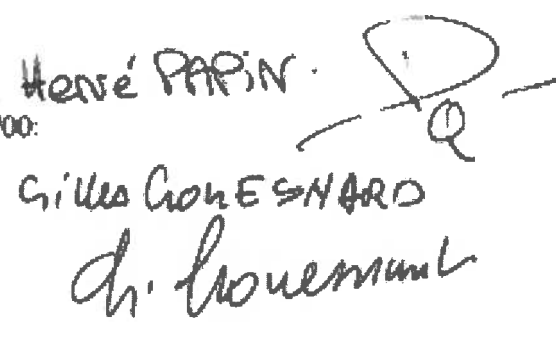 Hervé PAPIN.
00:
Gilles GOUESNARD